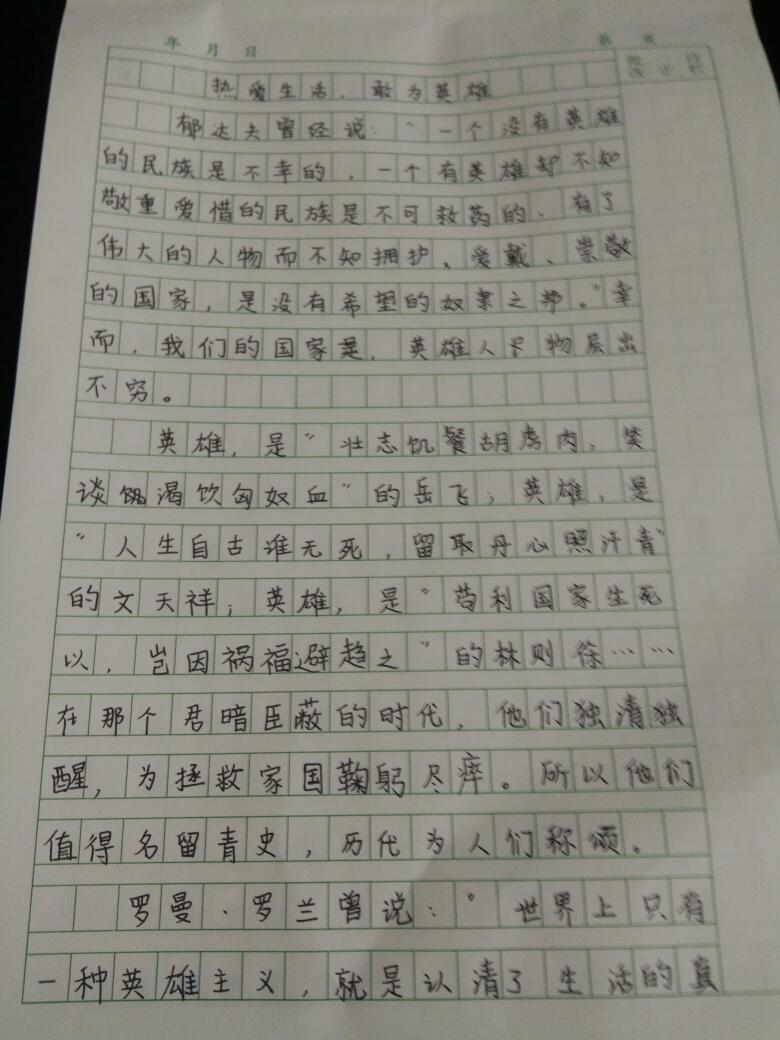 年 月 日 第 页
批改 注评
热爱生活，敢为英雄
郁达夫曾经说："一个没有英雄
的民族是不幸的，一个有英雄却不知
敬重爱惜的民族是不可救药的、有了
伟大的人物而不知拥护、爱戴、崇敬
的国家，是没有希望的奴隶之邦。"幸
而，我们的国家是，英雄人物层出
不穷。
英雄，是"壮志饥餐胡虏肉，笑
谈渴饮匈奴血"的岳飞；英雄，是
"人生自古谁无死，留取丹心照汗青"
的文天祥；英雄，是"苟利国家生死
以，岂因祸福避趋之"的林则徐……
在那个君暗臣蔽的时代，他们独清独
醒，为拯救家国鞠躬尽瘁。所以他们
值得名留青史，历代为人们称颂。
罗曼·罗兰曾说："世界上只有
一种英雄主义，就是认清了生活的真